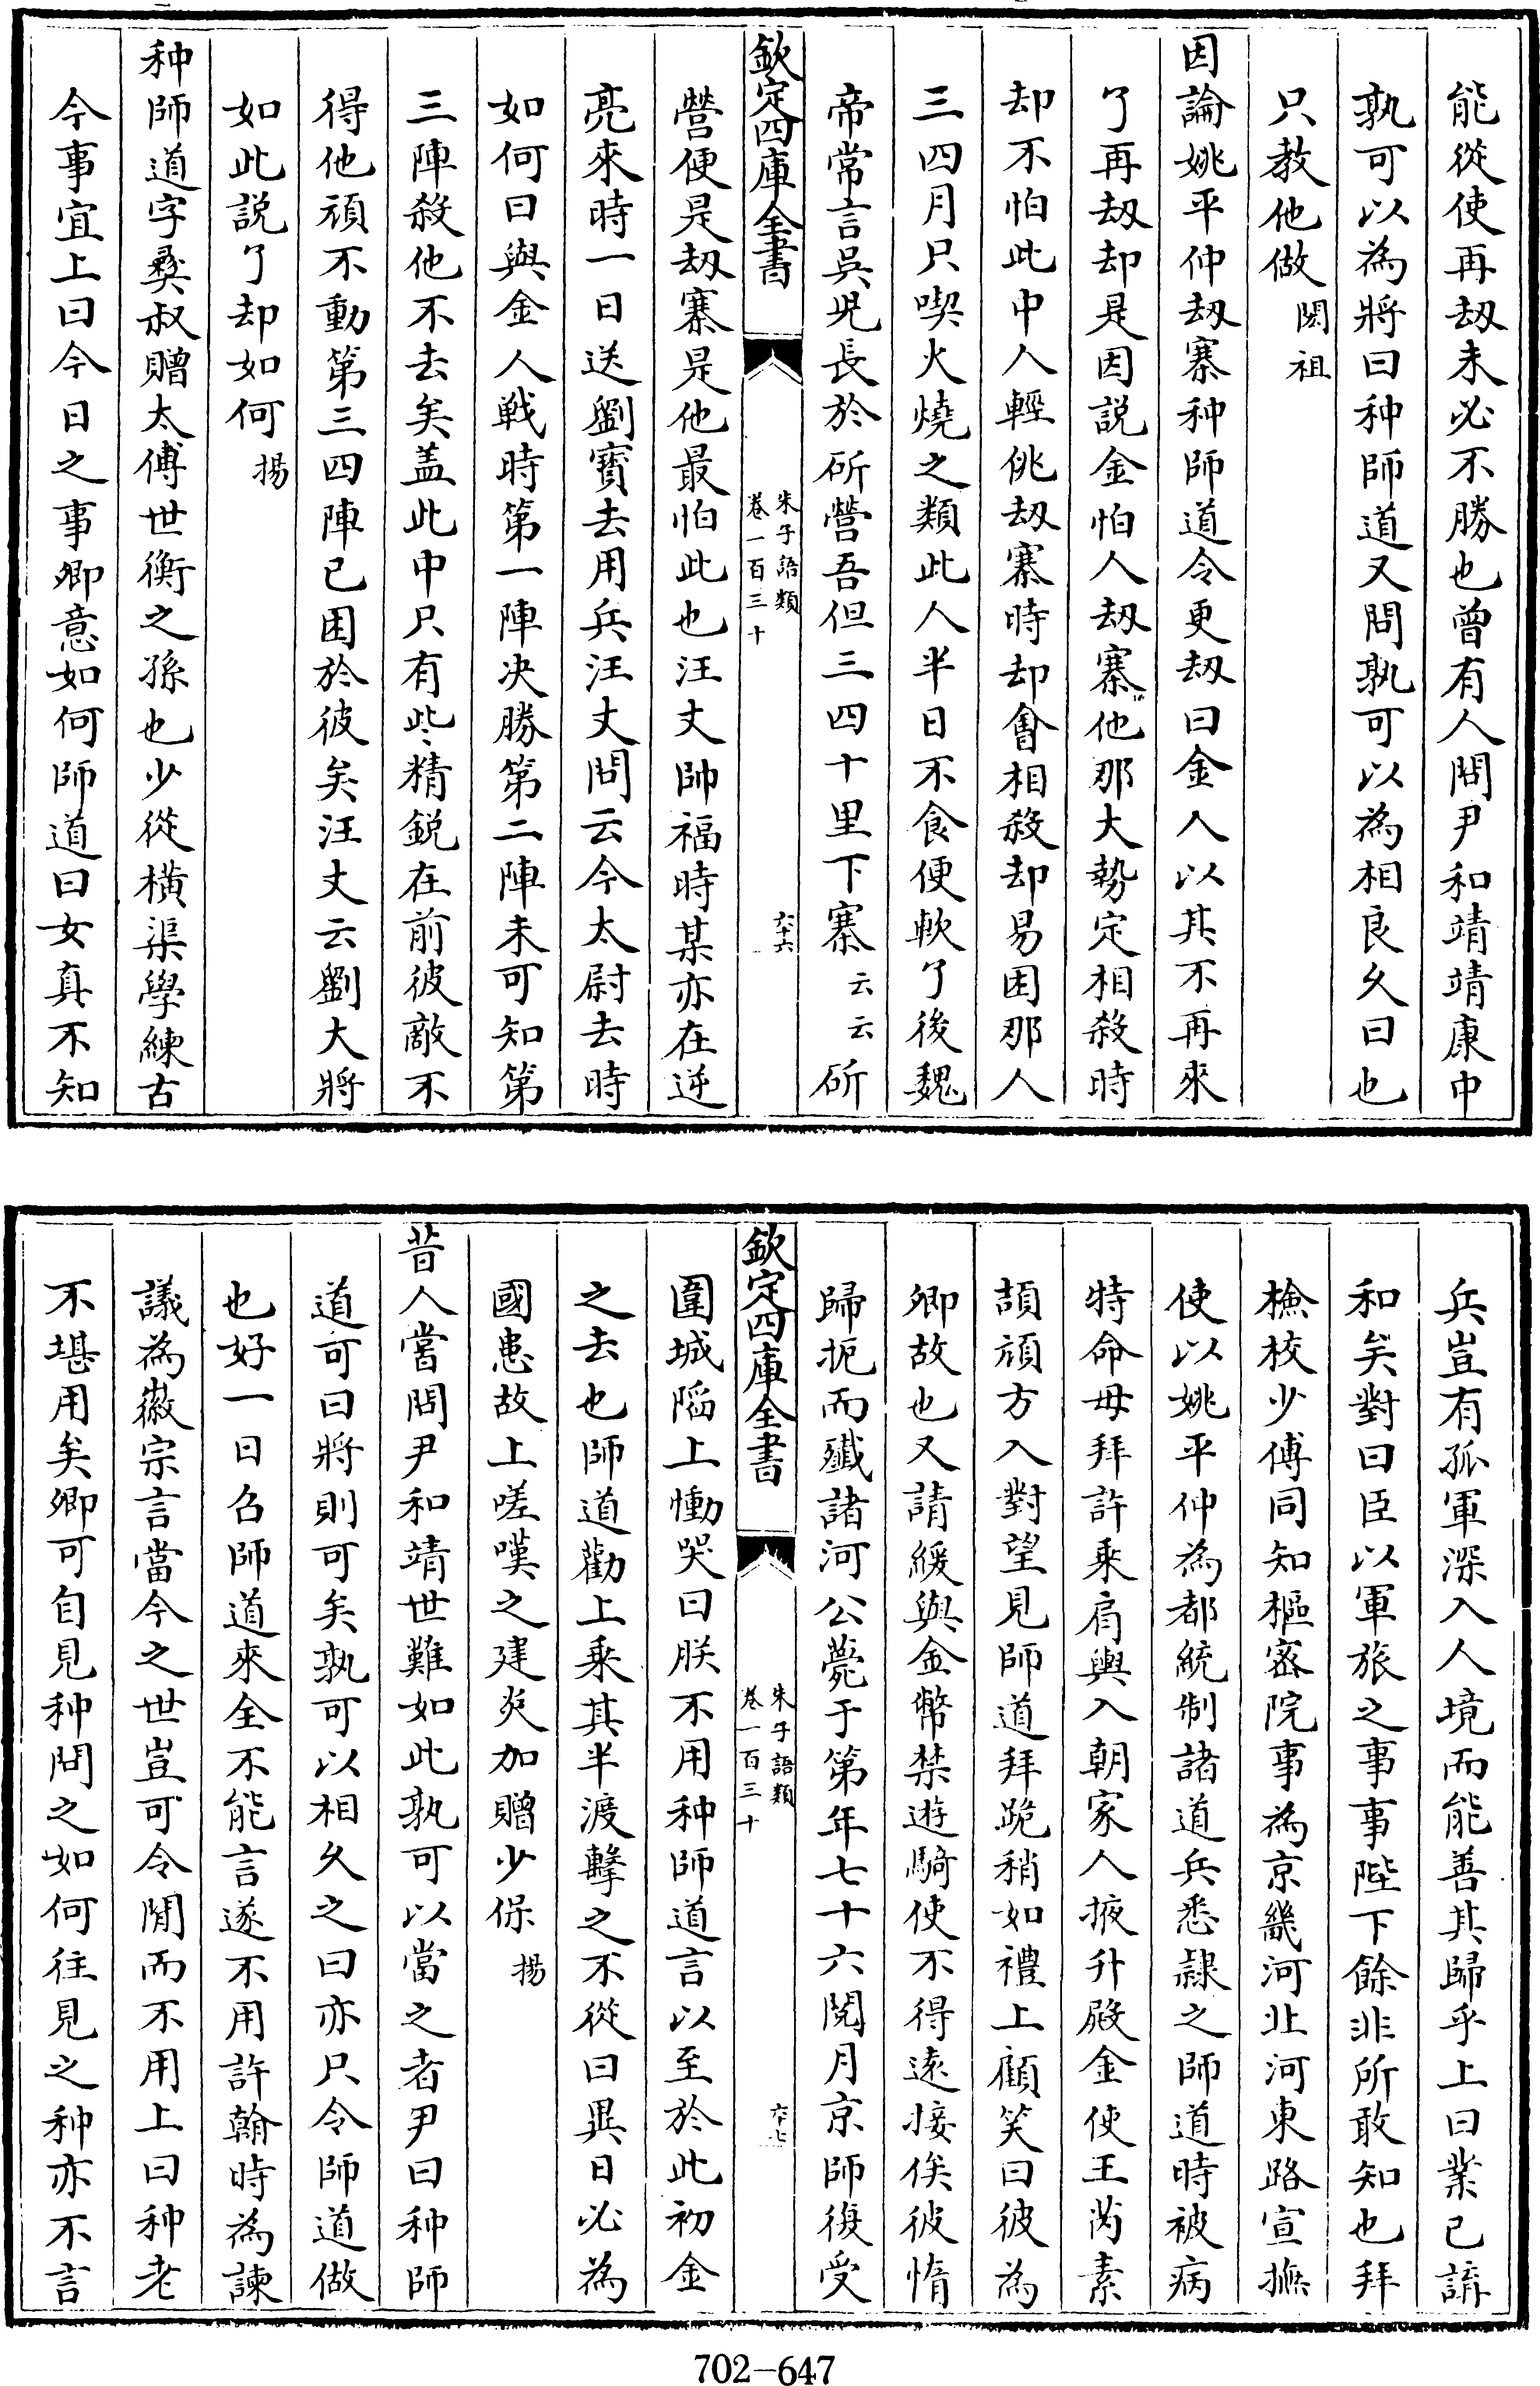 能從使再刼未必不勝也曾有人問尹和靖靖康中
孰可以為將曰种師道又問孰可以為相良久曰也
只教他做閎祖
因論姚平仲刼寨种師道令更刼曰金人以其不再來
了再刼却是因説金怕人刼寨他那大勢定相殺時
却不怕此中人輕佻刼寨時却會相殺却易困那人
三四月只喫火燒之類此人半日不食便軟了後魏
帝常言吳兒長於斫營吾但三四十里下寨云云斫
欽定四庫全書
朱子語類
卷一百三十
六十六
營便是刼寨是他最怕此也汪丈帥福時某亦在逆
亮來時一日送劉寳去用兵汪丈問云今太尉去時
如何曰與金人戰時第一陣決勝第二陣未可知第
三陣殺他不去矣盖此中只有些精鋭在前彼敵不
得他頑不動第三四陣已困於彼矣汪丈云劉大將
如此説了却如何揚
种師道字彛叔贈太傅世衡之孫也少從橫渠學練古
今事宜上曰今日之事卿意如何師道曰女真不知
兵豈有孤軍深入人境而能善其歸乎上曰業已講
和矣對曰臣以軍旅之事事陛下餘非所敢知也拜
檢校少傅同知樞密院事為京畿河北河東路宣撫
使以姚平仲為都統制諸道兵悉隷之師道時被病
特命毋拜許乘肩輿入朝家人掖升殿金使王芮素
頡頏方入對望見師道拜跪稍如禮上顧笑曰彼為
卿故也又請緩與金幣禁遊騎使不得遠接俟彼惰
歸扼而殱諸河公薨于第年七十六閱月京師復受
欽定四庫全書
朱子語類
卷一百三十
六十七
圍城䧟上慟哭曰朕不用种師道言以至於此初金
之去也師道勸上乘其半渡擊之不從曰異日必為
國患故上嗟嘆之建炎加贈少保揚
昔人嘗問尹和靖世難如此孰可以當之者尹曰种師
道可曰將則可矣孰可以相久之曰亦只令師道做
也好一日召師道來全不能言遂不用許翰時為諫
議為徽宗言當今之世豈可令閒而不用上曰种老
不堪用矣卿可自見种問之如何往見之种亦不言
702-647